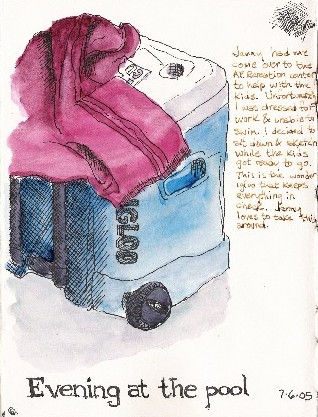 Jenny had me
come over to the
AF Recreation center
to help with the
kids. Unfortunately
I was dressed for
work & unable to
swim. I decided to
sit down &
while the kids
got ready to go.
This is the wonder
igloo that keeps
everything in
check. Jenny
loves to take this
around.
IGLOO
Evening at the pool
7-6-05